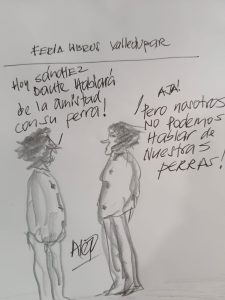 FERIA LIBROS VALLEDUPAR
HOY SÁNCHEZ
DAUTE HABLARÁ
de la amistad
con su perra!
AJÁ!
Pero nosotros
NO PODEMOS
HABLAR DE
NUESTRAS
PERRAS!